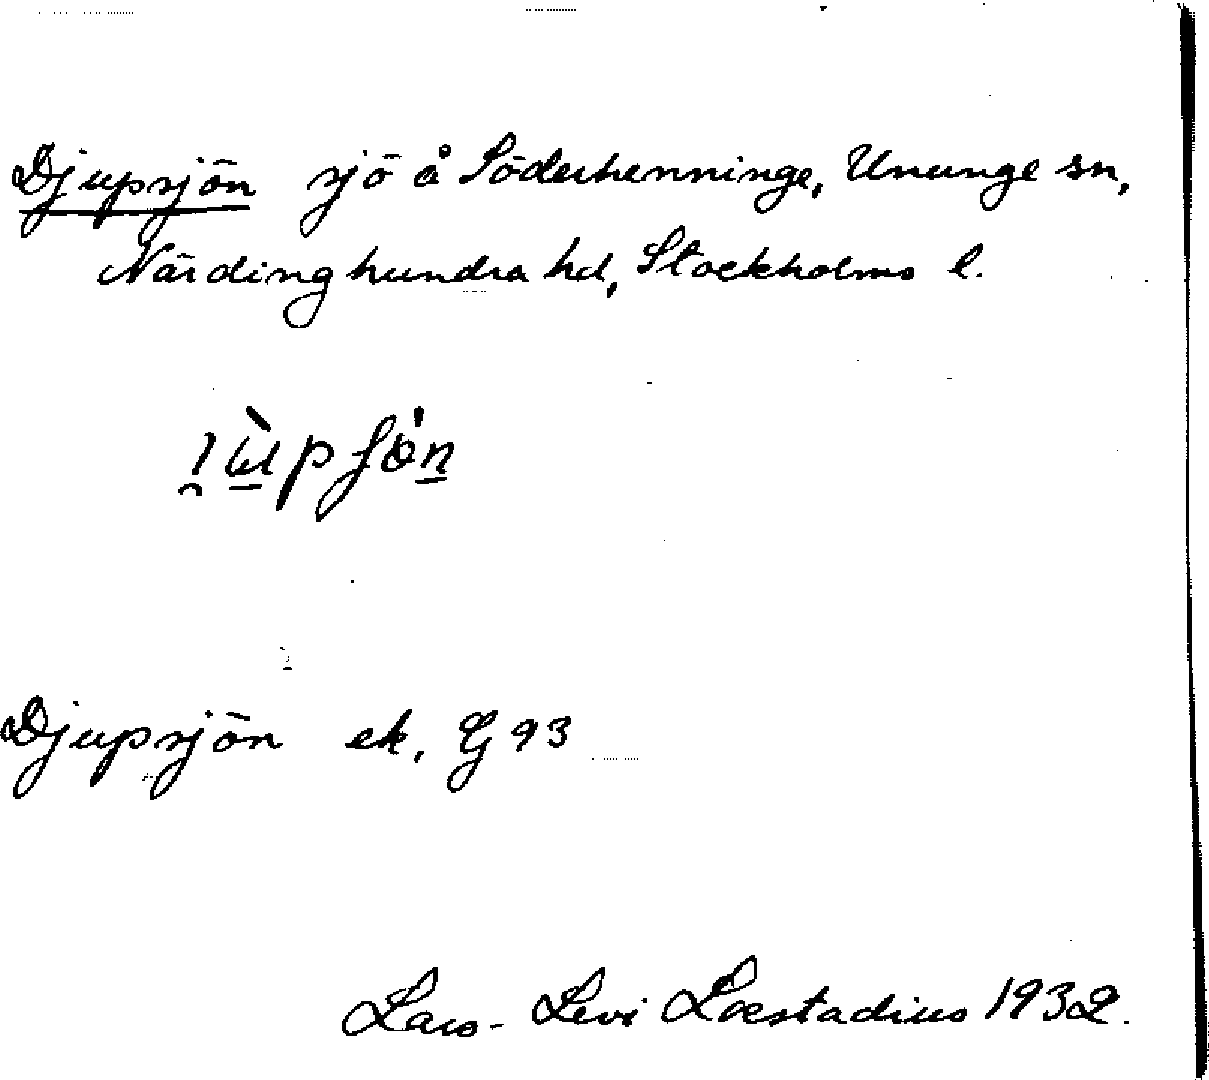 Djupsjön sjö å Söderhenninge, Ununge sn,
Närdinghundra hd, Stockholms l.
Djupsjön ek. G 93
Lars-Levi Laestadius 1932.